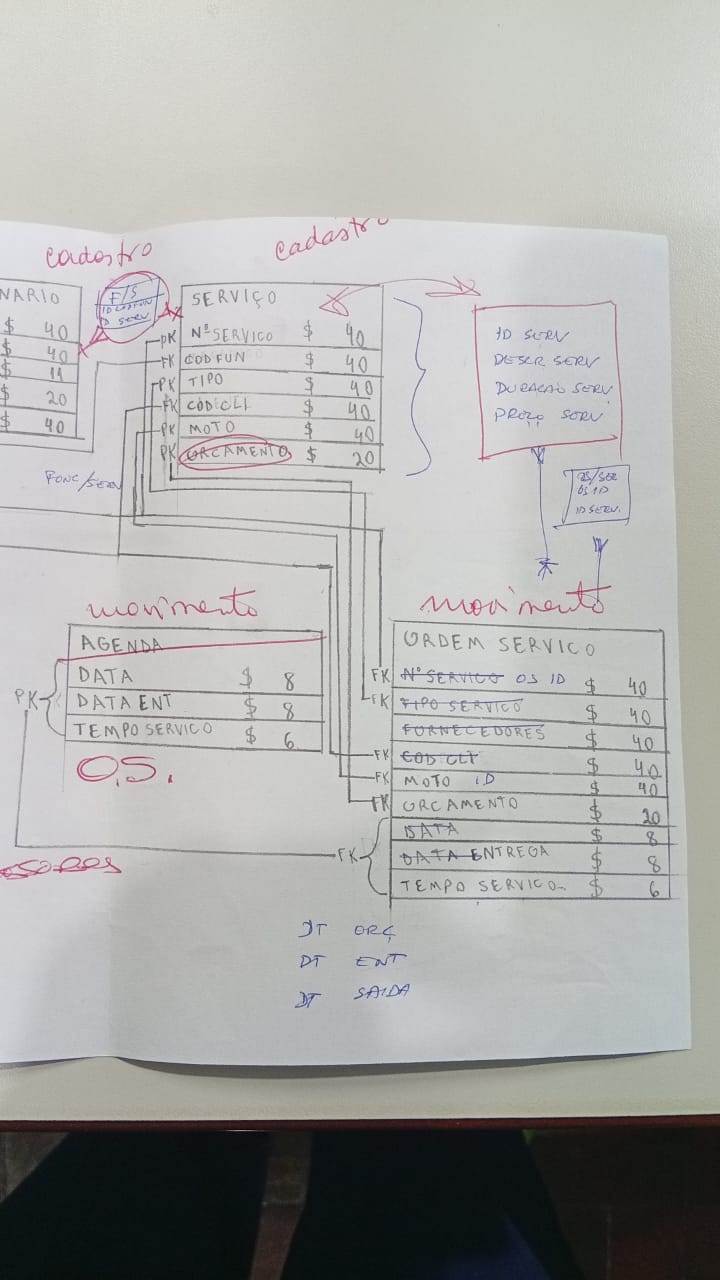 cadastro
cadastro
NARIO
$ 40
$ 40
$ 11
$ 20
$ 40
F/S
ID SERV
FUNC/SERV
SERVIÇO
PK Nº SERVICO $ 40
FK COD FUN $ 40
PK TIPO $ 40
FK COD CLI $ 40
PK MOTO $ 40
PK ORCAMENTO $ 20
ID SERV
DESCR SERV
DURACAO SERV
PREÇO SERV
OS/SER
OS ID
ID SERV.
movimento
AGENDA
PK
DATA $ 8
DATA ENT $ 8
TEMPO SERVICO $ 6
O.S.
movimento
ORDEM SERVICO
FK Nº SERVICO OS ID $ 40
FK TIPO SERVICO $ 40
FORNECEDORES $ 40
FK COD CLI $ 40
FK MOTO ID $ 40
FK ORCAMENTO $ 20
FK
DATA $ 8
DATA ENTREGA $ 8
TEMPO SERVICO $ 6
DT ORÇ
DT ENT
DT SAIDA